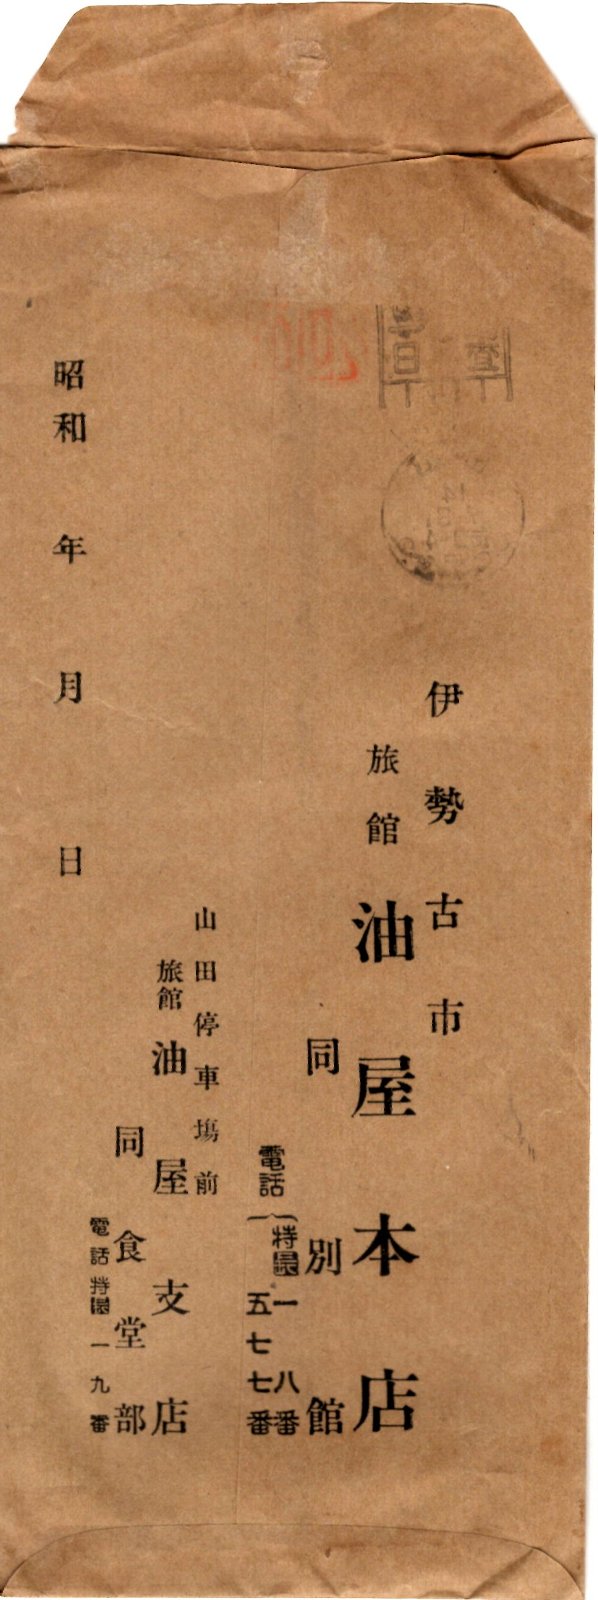 伊勢古市
旅館 油屋本店
同 別館
電話 特長 一八番
五七七番
山田停車塲前
旅館 油屋支店
同 食堂部
電話 特長 一九番
昭和 年 月 日